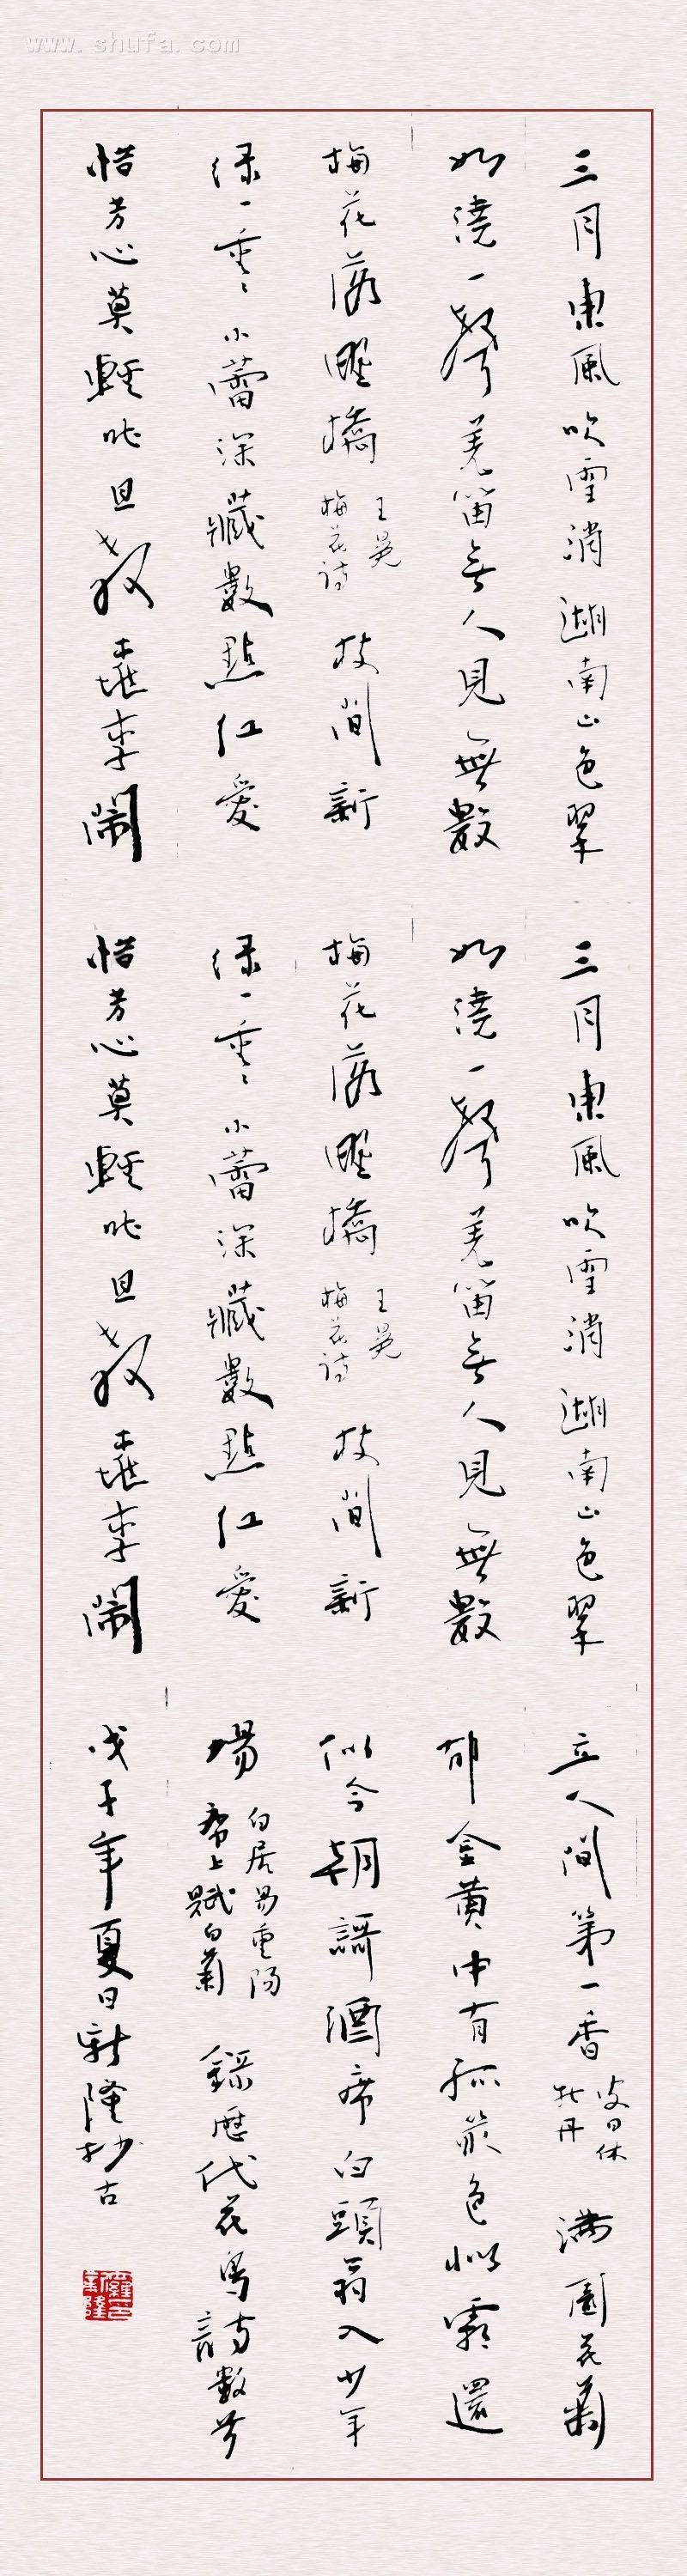 www.shufa.com
三月東風吹雪消湖南山色翠
如澆一聲羌笛无人見無數
梅花落野橋
王冕
梅花詩
枝間新
绿一重重小蕾深藏數點红愛
惜芳心莫輕吐且教桃李鬧
三月東風吹雪消湖南山色翠
如澆一聲羌笛无人見無數
梅花落野橋
王冕
梅花詩
枝間新
绿一重重小蕾深藏數點红愛
惜芳心莫輕吐且教桃李鬧
立人間第一香
皮日休
牡丹
滿園花菊
郁金黄中有孤叢色似霜還
似今朝謌酒席白頭翁入少年
場
白居易重陽
席上賦白菊
錄歷代花鳥詩數首
戊子年夏日新隆抄古